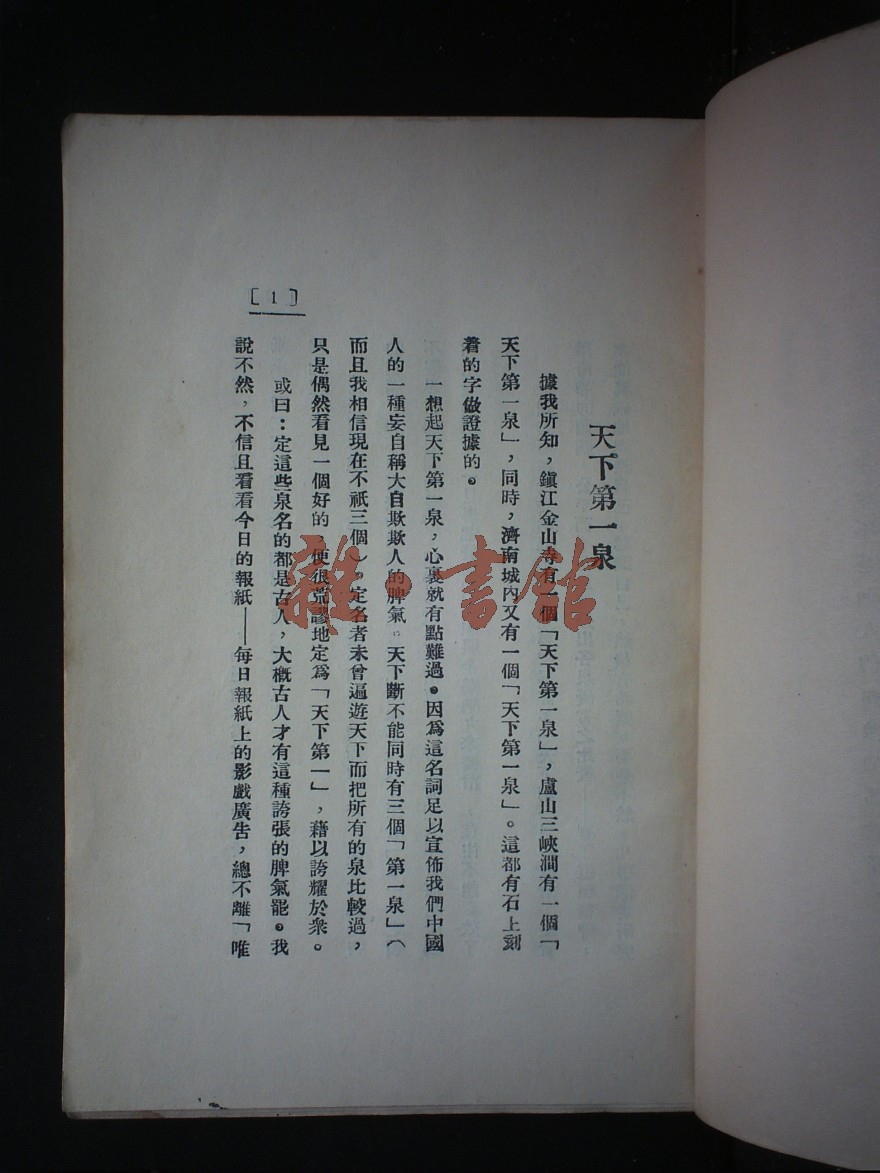 天下第一泉
據我所知，鎭江金山寺有一個「天下第一泉」，盧山三峽澗有一個「
天下第一泉」，同時，濟南城內又有一個「天下第一泉」。這都有石上刻
着的字做證據的。
一想起天下第一泉，心裏就有點難過。因爲這名詞足以宣佈我們中國
人的一種妄自稱大自欺欺人的脾氣。天下斷不能同時有三個「第一泉」（
而且我相信現在不祇三個）。定名者未曾遍遊天下而把所有的泉比較過，
只是偶然看見一個好的，便很荒謬地定爲「天下第一」，藉以誇耀於衆。
或曰：定這些泉名的都是古人，大概古人才有這種誇張的脾氣罷。我
說不然，不信且看看今日的報紙——每日報紙上的影戲廣告，總不離「唯
[1]
雜·書館